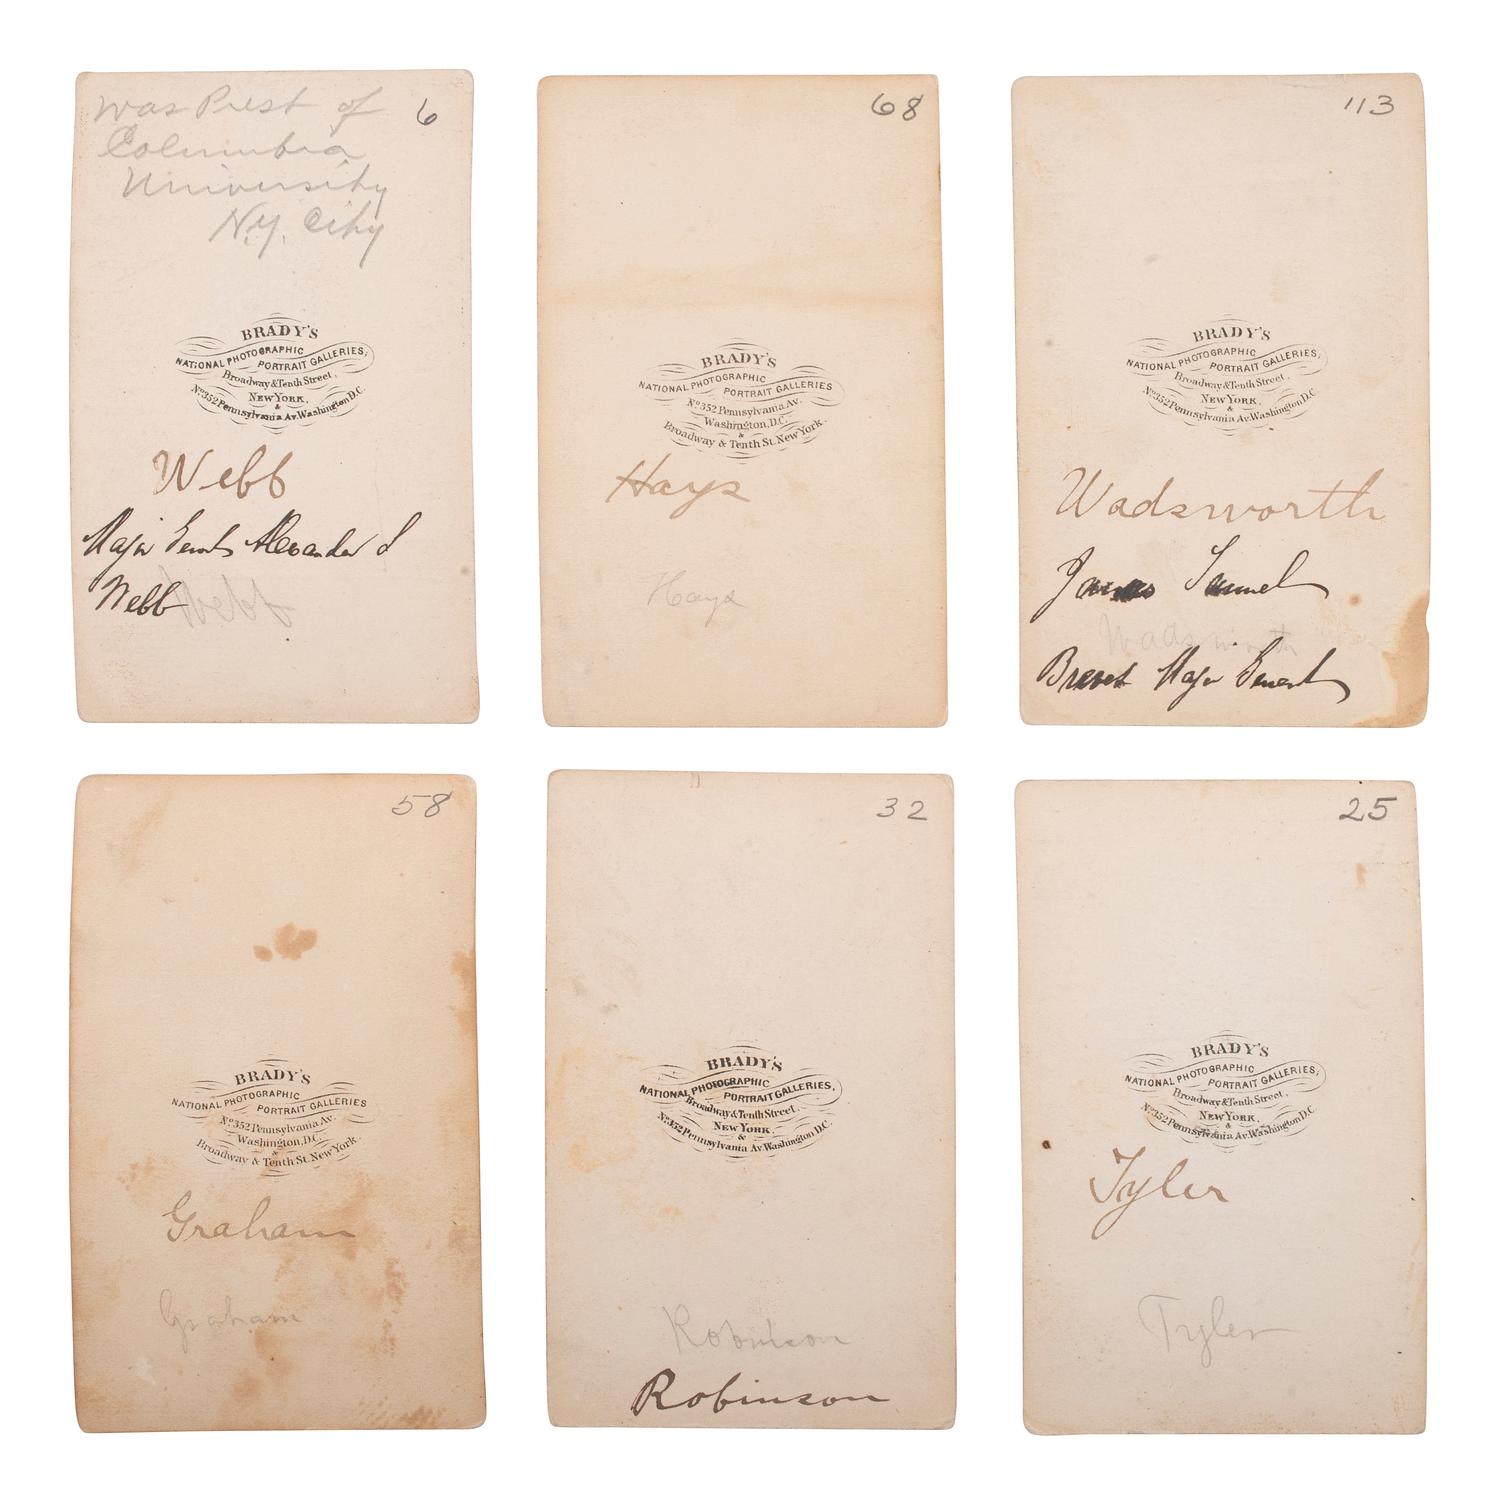 was Prest of
Columbia
University
N.Y. City
6
BRADY'S
NATIONAL PHOTOGRAPHIC
PORTRAIT GALLERIES,
Broadway & Tenth Street,
NEW YORK,
&
No. 352 Pennsylvania Av. Washington D.C.
Webb
Major Alexander S
Webb
Webb
68
BRADY'S
NATIONAL PHOTOGRAPHIC
PORTRAIT GALLERIES
No. 352 Pennsylvania Av.
Washington, D.C.
&
Broadway & Tenth St. New York.
Hays
Hays
113
BRADY'S
NATIONAL PHOTOGRAPHIC
PORTRAIT GALLERIES,
Broadway & Tenth Street,
NEW YORK,
&
No. 352 Pennsylvania Av. Washington D.C.
Wadsworth
James Samuel
Wadsworth
Brevet Major General
58
BRADY'S
NATIONAL PHOTOGRAPHIC
PORTRAIT GALLERIES
No. 352 Pennsylvania Av.
Washington, D.C.
&
Broadway & Tenth St. New York.
Graham
Graham
32
BRADY'S
NATIONAL PHOTOGRAPHIC
PORTRAIT GALLERIES,
Broadway & Tenth Street,
NEW YORK,
&
No. 352 Pennsylvania Av. Washington D.C.
Robinson
Robinson
25
BRADY'S
NATIONAL PHOTOGRAPHIC
PORTRAIT GALLERIES,
Broadway & Tenth Street,
NEW YORK,
&
No. 352 Pennsylvania Av. Washington D.C.
Tyler
Tyler